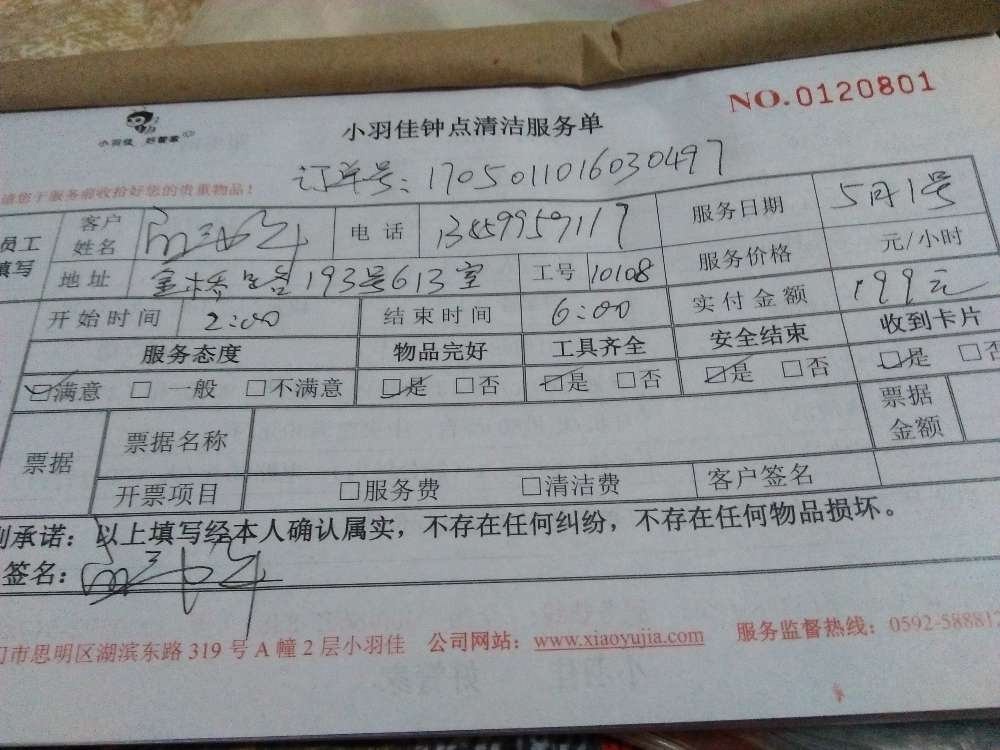 NO.0120801
小羽佳 好管家
小羽佳钟点清洁服务单
订单号：1705011016030497
请您于服务前收拾好您的贵重物品！
员工填写
客户姓名 电话 13459959117 服务日期 5月1号
地址 金桥 193号613室 工号 10108 服务价格 元/小时
开始时间 2:00 结束时间 6:00 实付金额 199元
服务态度 物品完好 工具齐全 安全结束 收到卡片
☑满意 □一般 □不满意 ☑是 □否 ☑是 □否 ☑是 □否 ☑是 □否
票据 票据名称 票据金额
开票项目 □服务费 □清洁费 客户签名
承诺：以上填写经本人确认属实，不存在任何纠纷，不存在任何物品损坏。
签名：
门市思明区湖滨东路 319 号 A 幢 2 层小羽佳 公司网站：www.xiaoyujia.com 服务监督热线：0592-588812